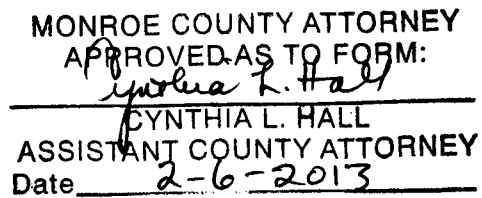 MONROE COUNTY ATTORNEY
APPROVED AS TO FORM:
Cynthia L. Hall
CYNTHIA L. HALL
ASSISTANT COUNTY ATTORNEY
Date 2-6-2013